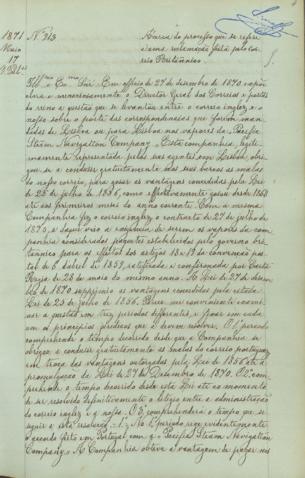 1871 N. 313
Maio
17
Acerca do processo que se refere
á uma reclamação feita pelo Cor-
reio Britânico.
Ill.mo e Ex.mo Snr. Em officio de 27 de dezembro de 1870 expu-
nha o Director Geral dos Correios e postas
do reino a questão que se levantou entre o correio inglez e o
nosso sobre o porte das correspondencias que foram man-
dadas de Lisboa ou para Lisboa nos vapores da Pacific
Steam Navigation Company. Esta companhia, legiti-
mamente representada pelos seus agentes em Lisboa, obri-
gou-se a conduzir gratuitamente nos seus barcos as malas
do nosso correio, para gosar as vantagens concedidas pela Lei
de 25 de julho de 1856, como effectivamente gosou desde 1868
até aos primeiros mezes do anno corrente. Com a mesma
Companhia fez o correio inglez o contracto de 27 de julho de
1870, e daqui veio a exigencia de serem os vapores da com-
panhia considerados paquetes estabelecidos pelo governo bri-
tannico para os effeitos dos artigos 13 e 14 da convenção pos-
tal de 6 d'abril de 1859, ratificada e confirmada por Carta
Regia de 28 de maio do mesmo anno. A Lei de 27 de dezem-
bro de 1870 supprimio as vantagens concedidas pela citada
Lei de 25 de julho de 1856. Parece-me conveniente exami-
nar a questão em tres periodos differentes, e fixar em cada
um os principios juridicos que a devem resolver. O 1.º periodo
comprehende o tempo decorrido desde que a Companhia se
obrigou a conduzir gratuitamente as malas do correio portuguez
em troca das vantagens outorgadas pela Lei de 1856 até á
promulgação da Lei de 27 de Dezembro de 1870. O 2.º com-
prehende o tempo decorrido desde esta Lei até ao momento
de ser resolvido definitivamente o litigio entre a administração
do correio inglez e o nosso. O 3.º comprehenderá o tempo que se
seguir a esta resolução. No 1.º periodo rege evidentemente
o accordo feito em Portugal com a Pacific Steam Navigation
Company. A Companhia obteve a vantagem de pagar nos